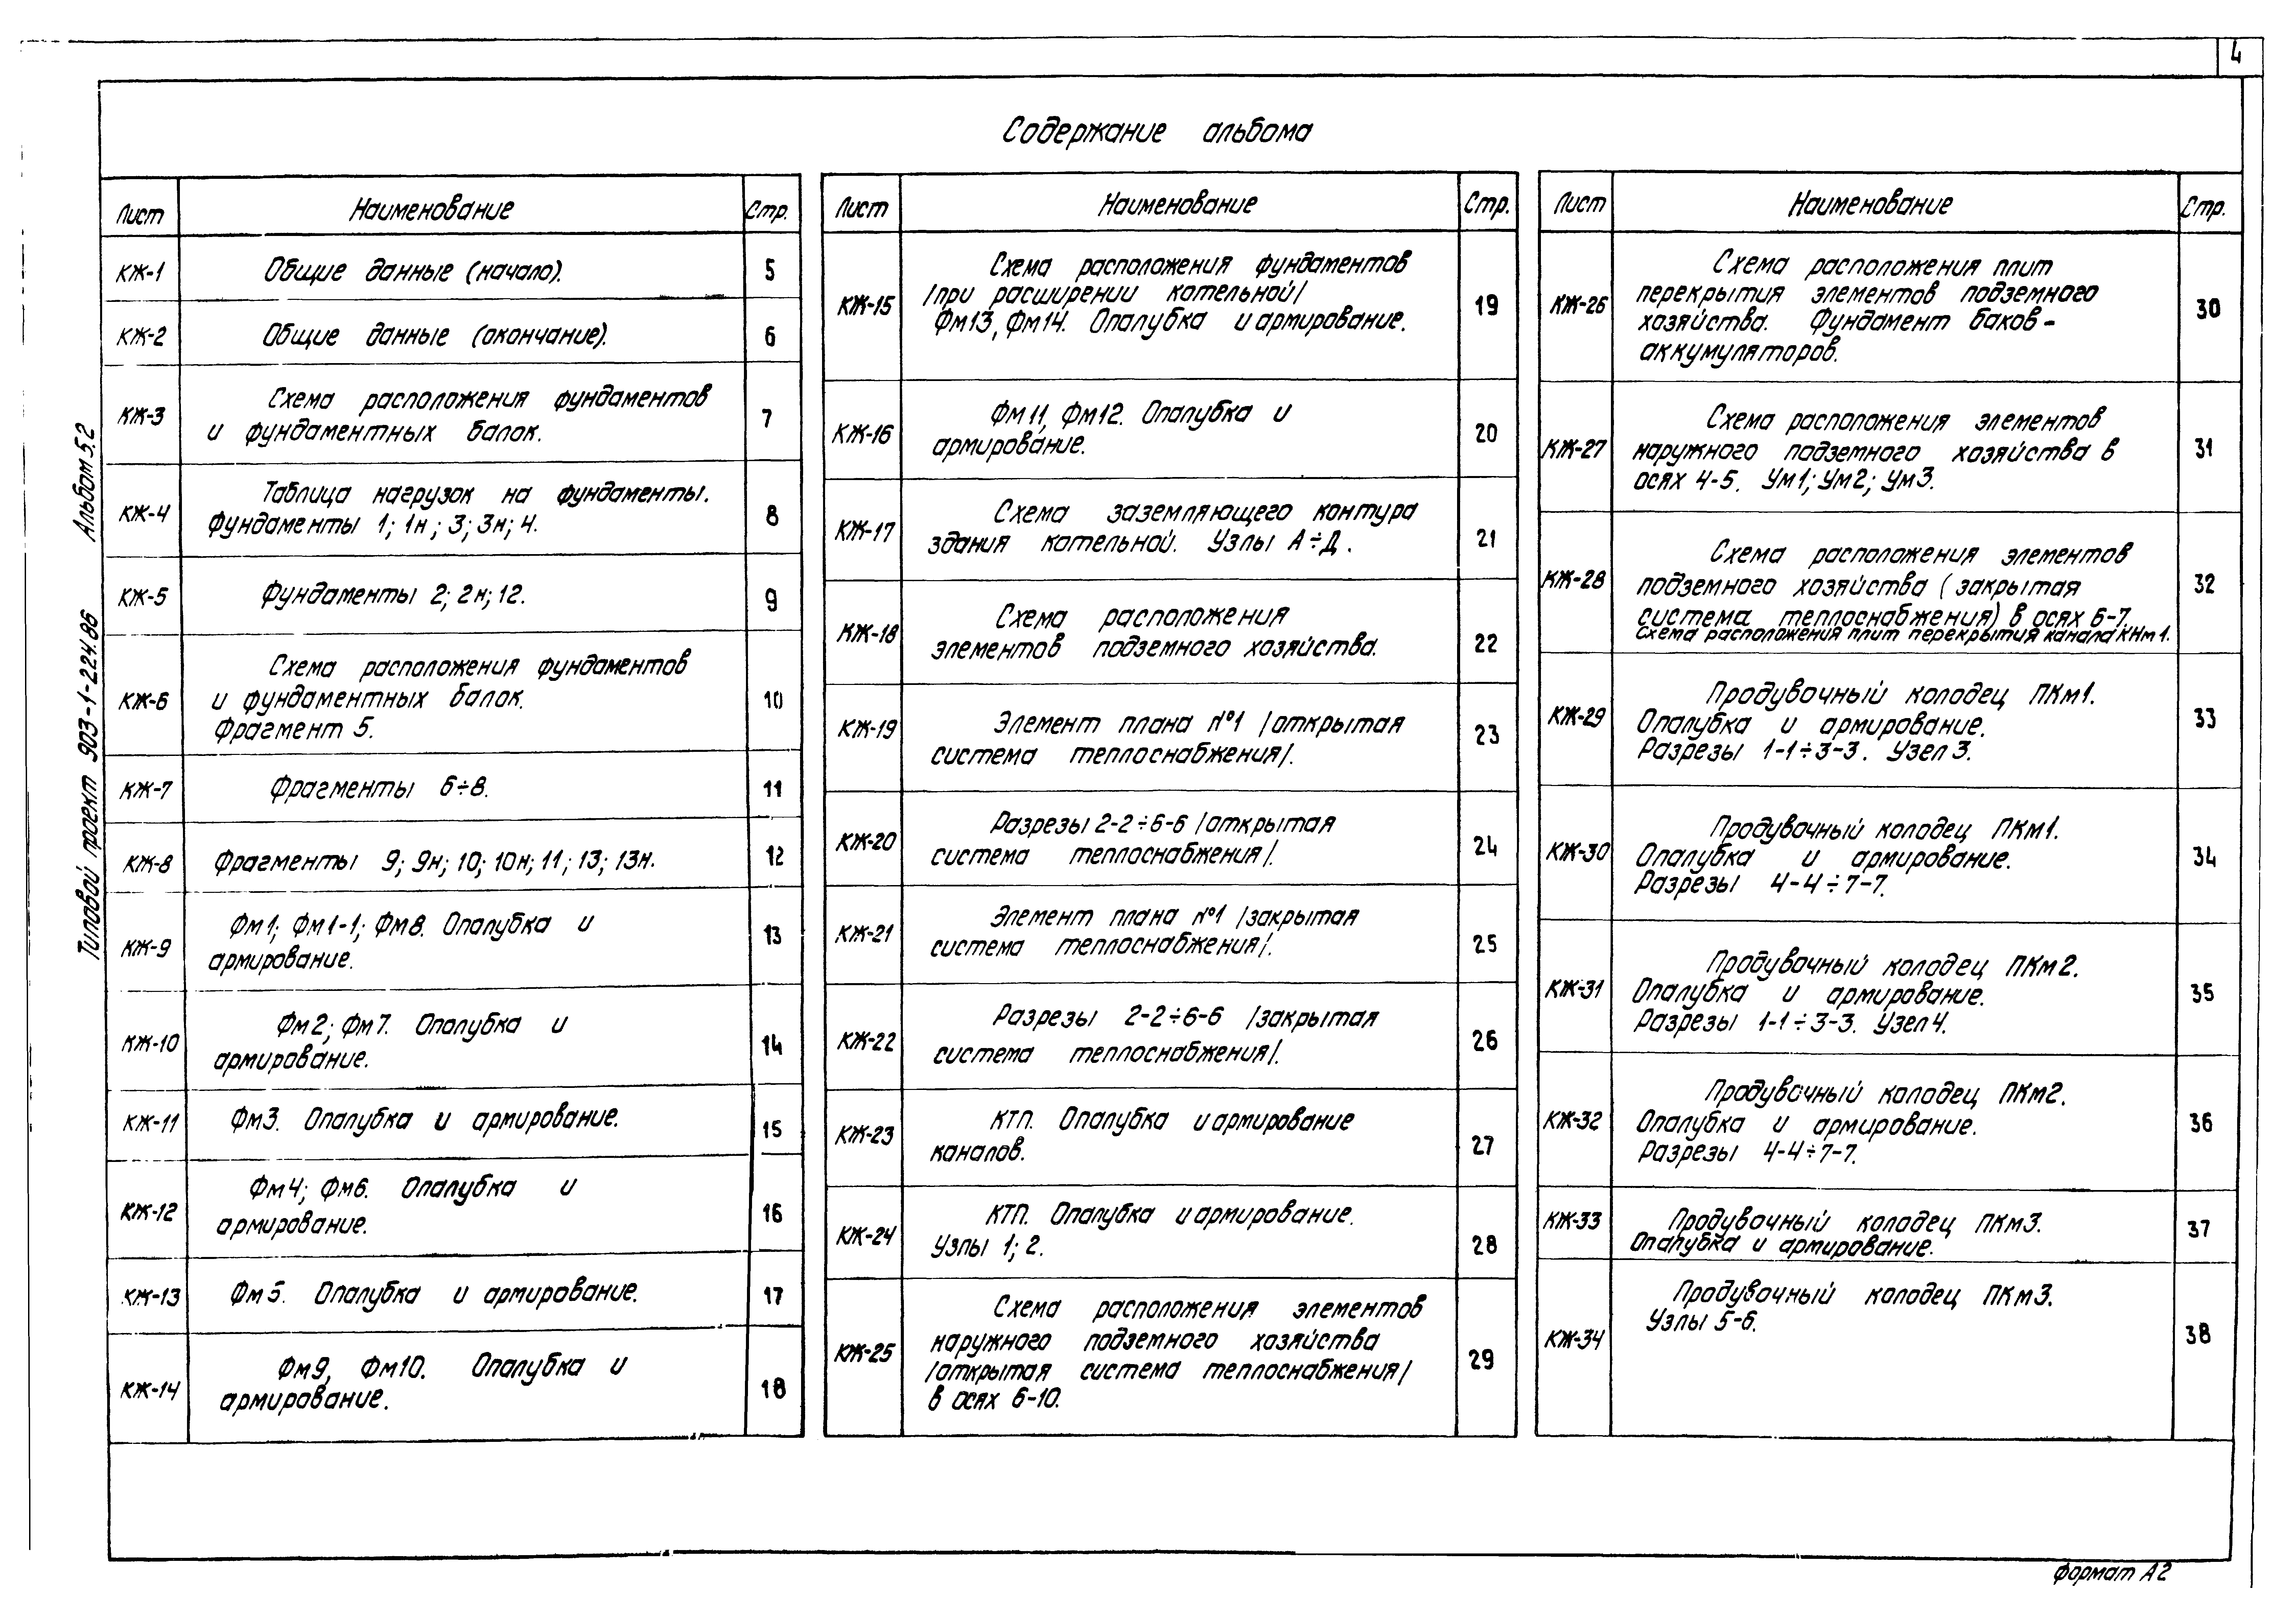 4
Содержание альбома
Типовой проект 903-1-224.86 Альбом 5.2
Лист Наименование Стр.
КЖ-1 Общие данные (начало). 5
КЖ-2 Общие данные (окончание). 6
КЖ-3 Схема расположения фундаментов
и фундаментных балок. 7
КЖ-4 Таблица нагрузок на фундаменты.
Фундаменты 1; 1н; 3; 3н; 4. 8
КЖ-5 Фундаменты 2; 2н; 12. 9
КЖ-6 Схема расположения фундаментов
и фундаментных балок.
Фрагмент 5. 10
КЖ-7 Фрагменты 6÷8. 11
КЖ-8 Фрагменты 9; 9н; 10; 10н; 11; 13; 13н. 12
КЖ-9 Фм1; Фм1-1; Фм8. Опалубка и
армирование. 13
КЖ-10 Фм2; Фм7. Опалубка и
армирование. 14
КЖ-11 Фм3. Опалубка и армирование. 15
КЖ-12 Фм4; Фм6. Опалубка и
армирование. 16
КЖ-13 Фм5. Опалубка и армирование. 17
КЖ-14 Фм9, Фм10. Опалубка и
армирование. 18
Лист Наименование Стр.
КЖ-15 Схема расположения фундаментов
/при расширении котельной/
Фм13, Фм14. Опалубка и армирование. 19
КЖ-16 Фм11, Фм12. Опалубка и
армирование. 20
КЖ-17 Схема заземляющего контура
здания котельной. Узлы А÷Д. 21
КЖ-18 Схема расположения
элементов подземного хозяйства. 22
КЖ-19 Элемент плана №1 /открытая
система теплоснабжения/. 23
КЖ-20 Разрезы 2-2÷6-6 /открытая
система теплоснабжения/. 24
КЖ-21 Элемент плана №1 /закрытая
система теплоснабжения/. 25
КЖ-22 Разрезы 2-2÷6-6 /закрытая
система теплоснабжения/. 26
КЖ-23 КТП. Опалубка и армирование
каналов. 27
КЖ-24 КТП. Опалубка и армирование.
Узлы 1; 2. 28
КЖ-25 Схема расположения элементов
наружного подземного хозяйства
/открытая система теплоснабжения/
в осях 6-10. 29
Лист Наименование Стр.
КЖ-26 Схема расположения плит
перекрытия элементов подземного
хозяйства. Фундамент баков-
аккумуляторов. 30
КЖ-27 Схема расположения элементов
наружного подземного хозяйства в
осях 4-5. Ум1; Ум2; Ум3. 31
КЖ-28 Схема расположения элементов
подземного хозяйства (закрытая
система теплоснабжения) в осях 6-7.
Схема расположения плит перекрытия канала КНм1. 32
КЖ-29 Продувочный колодец ПКм1.
Опалубка и армирование.
Разрезы 1-1÷3-3. Узел 3. 33
КЖ-30 Продувочный колодец ПКм1.
Опалубка и армирование.
Разрезы 4-4÷7-7. 34
КЖ-31 Продувочный колодец ПКм2.
Опалубка и армирование.
Разрезы 1-1÷3-3. Узел 4. 35
КЖ-32 Продувочный колодец ПКм2.
Опалубка и армирование.
Разрезы 4-4÷7-7. 36
КЖ-33 Продувочный колодец ПКм3.
Опалубка и армирование. 37
КЖ-34 Продувочный колодец ПКм3.
Узлы 5-6. 38
Формат А2